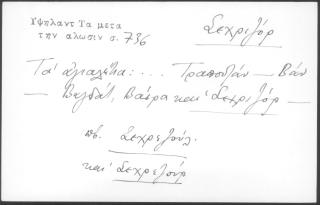 Ὑψηλαντ Τα μετα
την αλωσιν σ. 736
Σεχριζόρ
Τά ἀγιαλέτια: ... Τραπουζάν — Βάν
— Βαγδάτ, Βάσρα και Σεχριζόρ —
πβ. Σεχρεζούλ
και Σεχρεζούρ